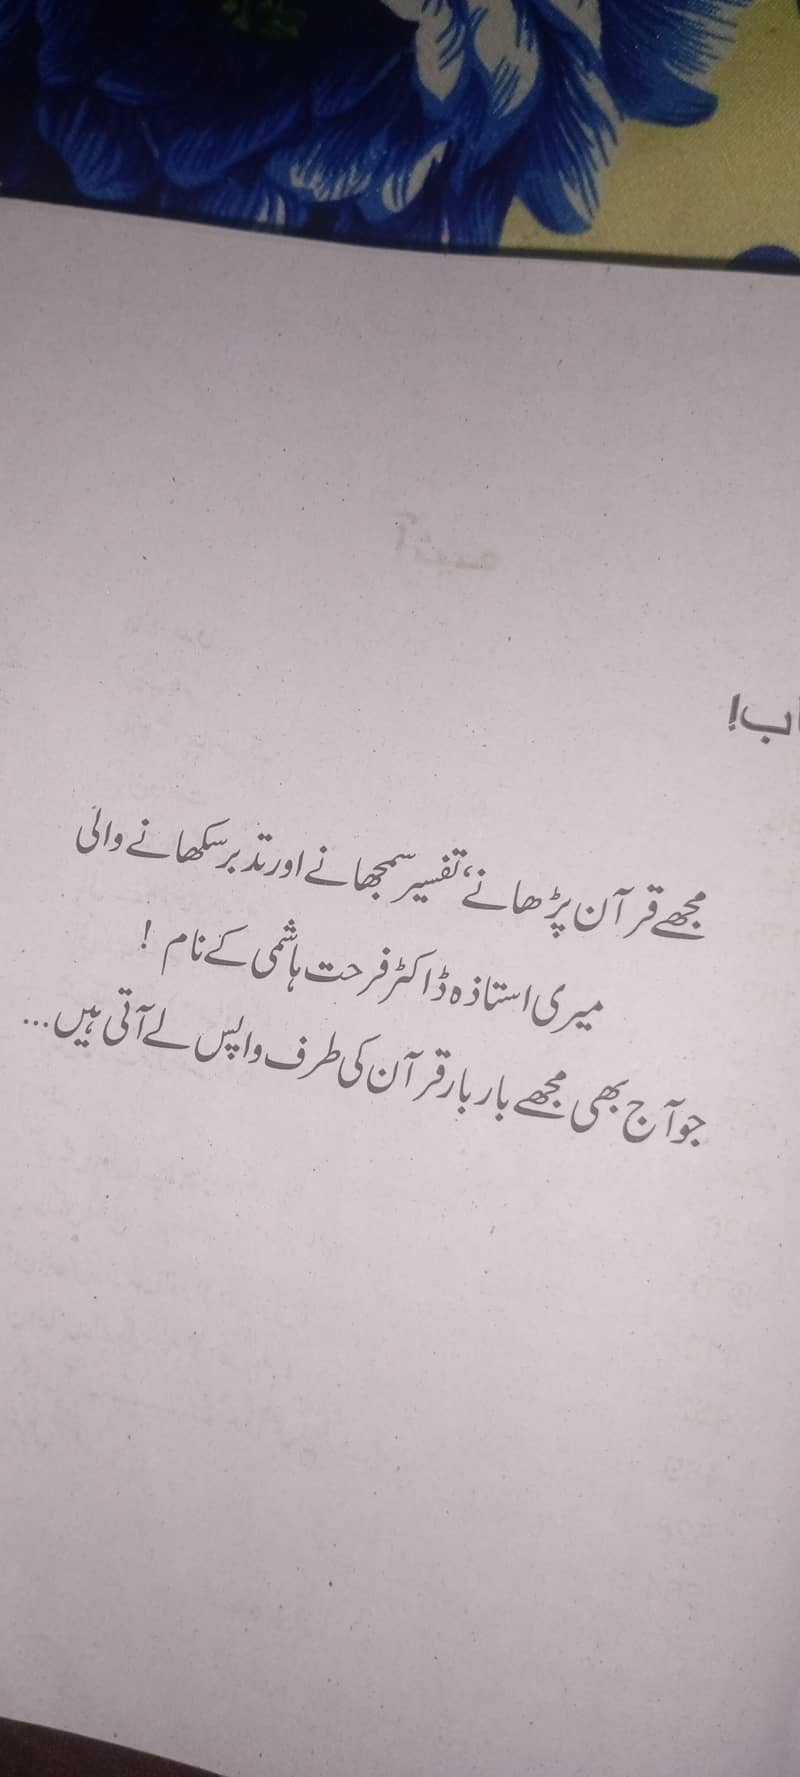 مجھے قرآن پڑھانے، تفسیر سمجھانے اور تدبر سکھانے والی
میری استاذہ ڈاکٹر فرحت ہاشمی کے نام !
جو آج بھی مجھے بار بار قرآن کی طرف واپس لے آتی ہیں...